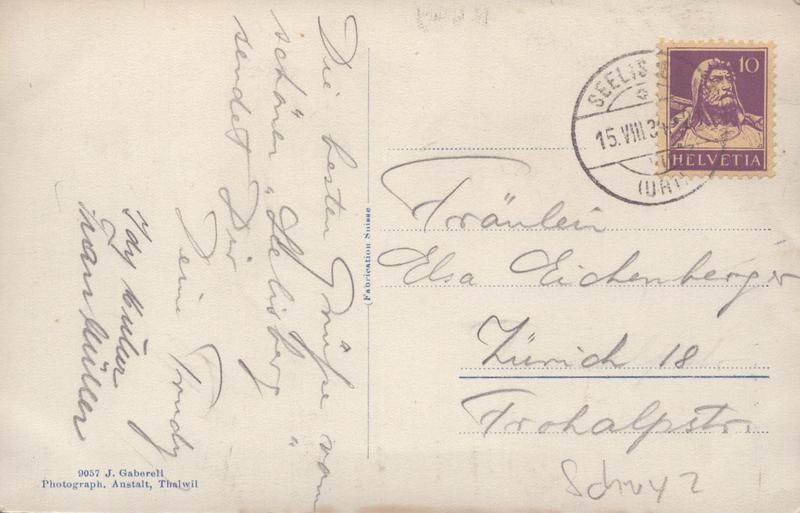 Die besten Grüße vom
schönen „Seelisberg"
sendet Dir
Deine Trudy
Idy
Müller
(Fabrication Suisse)
SEELIS
15.VIII.3
(URI)
10
HELVETIA
Fräulein
Elsa Eichenberger
Zürich 18
Frohalpstr.
Schwyz
9057 J. Gaberell
Photograph. Anstalt, Thalwil